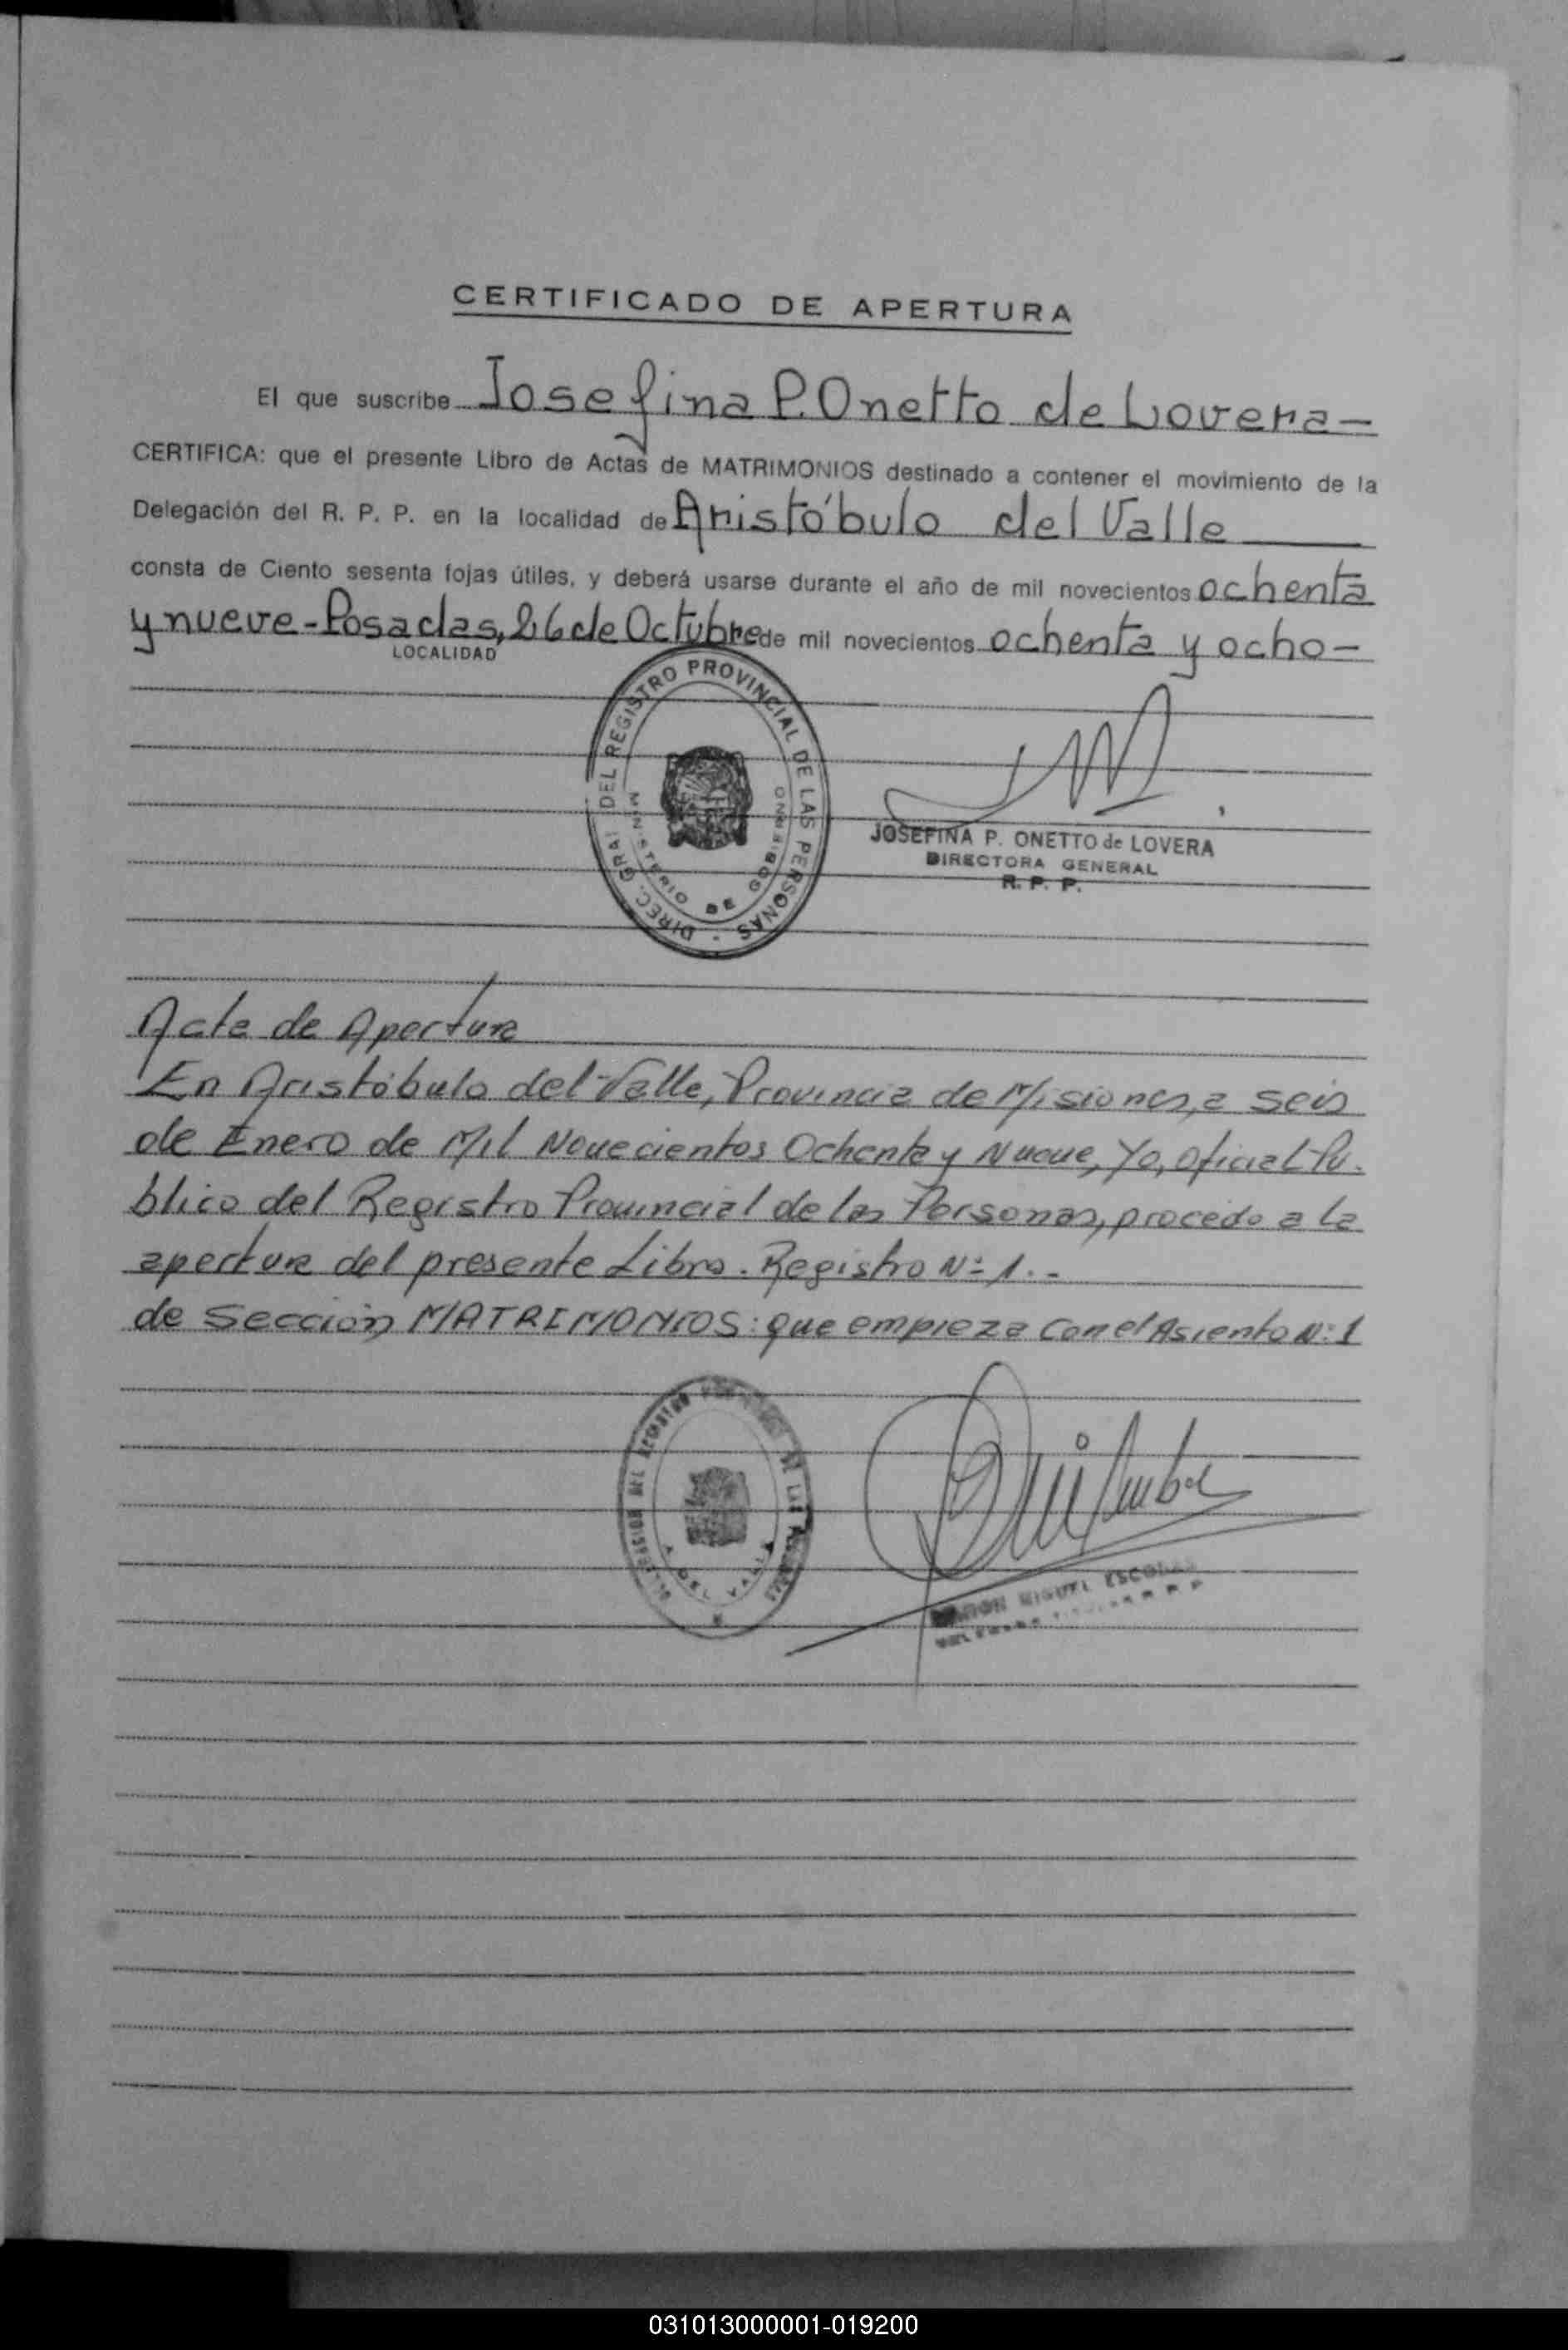 CERTIFICADO DE APERTURA
El que suscribe Josefina P. Onetto de Lovera —
CERTIFICA: que el presente Libro de Actas de MATRIMONIOS destinado a contener el movimiento de la
Delegación del R. P. P. en la localidad de Aristóbulo del Valle
consta de Ciento sesenta fojas útiles, y deberá usarse durante el año de mil novecientos ochenta
y nueve - Posadas, 26 de Octubre de mil novecientos ochenta y ocho —
LOCALIDAD
DIREC. GRAL. DEL REGISTRO PROVINCIAL DE LAS PERSONAS -
MINISTERIO DE GOBIERNO
JOSEFINA P. ONETTO de LOVERA
DIRECTORA GENERAL
R. P. P.
Acta de Apertura
En Aristóbulo del Valle, Provincia de Misiones, a seis
de Enero de Mil Novecientos Ochenta y Nueve, Yo, Oficial Pú-
blico del Registro Provincial de las Personas, procedo a la
apertura del presente Libro. Registro Nº 1. -
de Sección MATRIMONIOS: que empieza con el Asiento Nº 1
DELEGACION DEL REGISTRO PROVINCIAL DE LAS PERSONAS
A. DEL VALLE
RAMON MIGUEL ESCOBAR
031013000001-019200